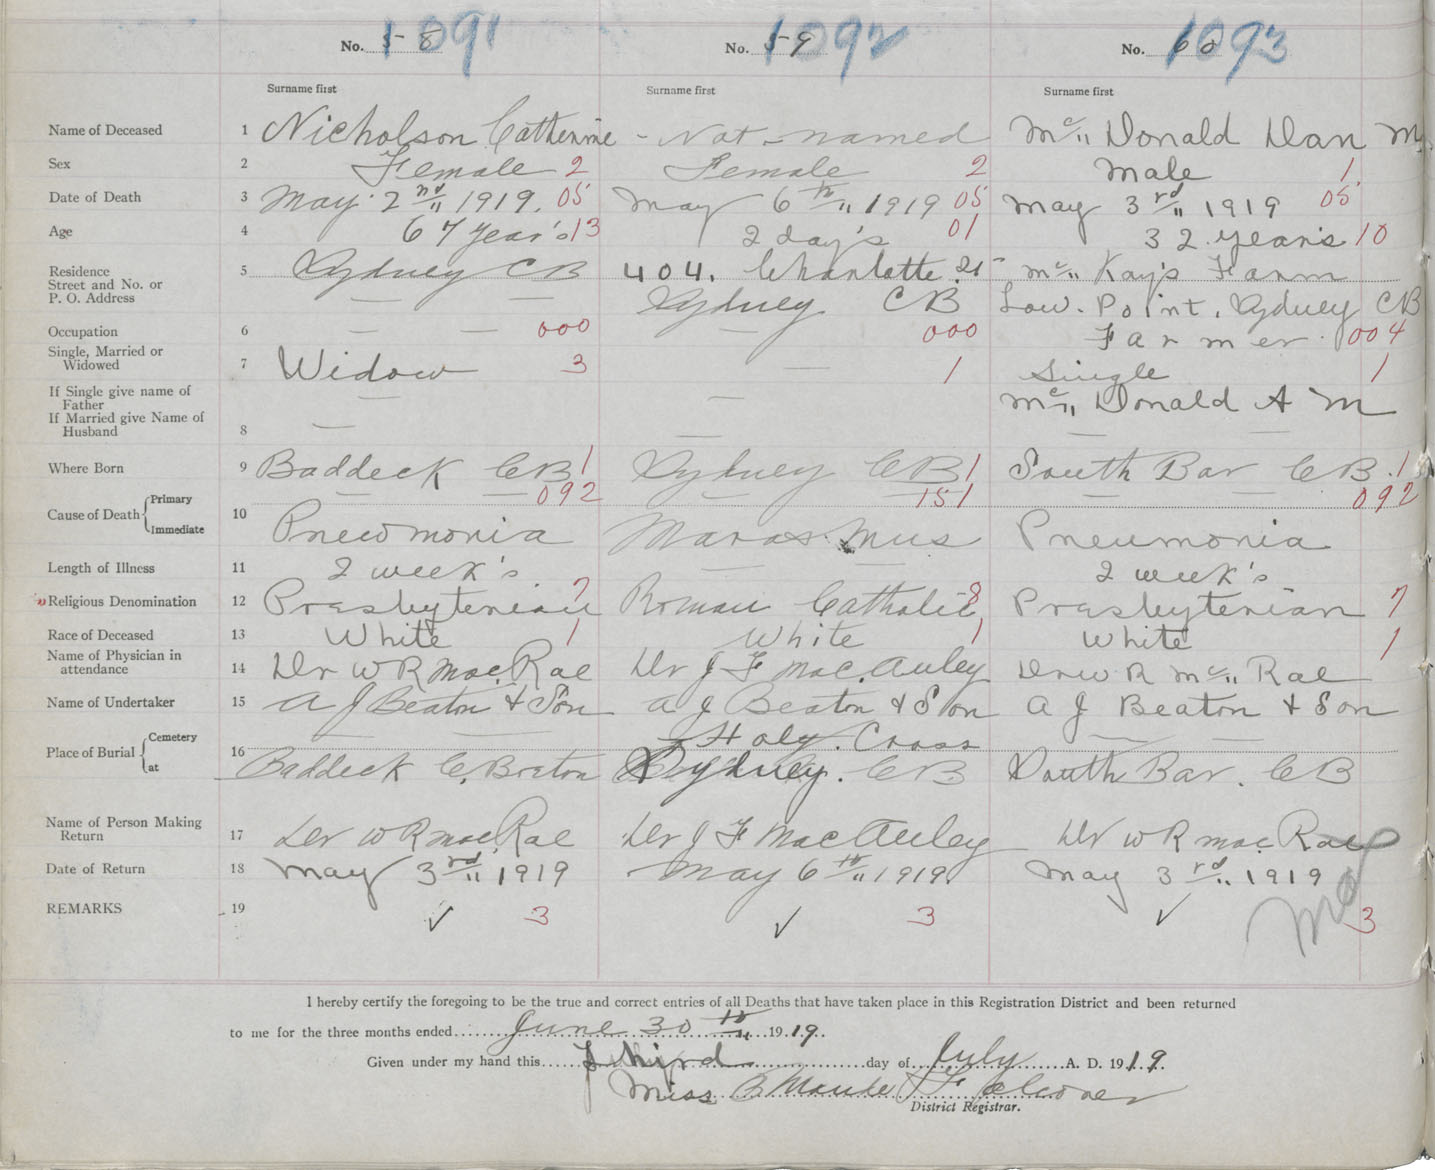 No. 58 1091 No. 59 1092 No. 60 1093
Surname first Surname first Surname first
Name of Deceased 1 Nicholson Catherine - Not - named Mc" Donald Dan M
Sex 2 Female 2 Female 2 Male 1
Date of Death 3 May 2nd" 1919. 05 May 6th" 1919 05 May 3rd" 1919 05
Age 4 67 year's 13 2 day's 01 32 years 10
Residence 5 Sydney CB 404. Charlotte. St Mc" Kay's Farm
Street and No. or
P. O. Address — — Sydney CB Low. Point, Sydney CB
Occupation 6 — — 000 — 000 Farmer. 004
Single, Married or
Widowed 7 Widow 3 — 1 Single 1
If Single give name of
Father — — Mc" Donald A M
If Married give Name of
Husband 8 — — — —
Where Born 9 Baddeck CB 1 Sydney CB 1 South Bar CB. 1
Cause of Death { Primary — — 092 — 151 — — 092
Immediate 10 Pnewmonia Marasmus Pneumonia
Length of Illness 11 2 week's. — — 2 week's
" Religious Denomination 12 Presbyterian 7 Roman Catholic 8 Presbyterian 7
Race of Deceased 13 White 1 White 1 White 1
Name of Physician in
attendance 14 Dr W R Mac. Rae Dr J F Mac. Auley Dr W R Mc" Rae
Name of Undertaker 15 A J Beaton & Son A J Beaton & Son A J Beaton & Son
Place of Burial { Cemetery 16 — — Holy. Cross — —
at Baddeck C. Breton Sydney. CB South Bar. CB
Name of Person Making
Return 17 Dr W R Mac. Rae Dr J F MacAuley Dr W R Mac. Rae
Date of Return 18 May 3rd" 1919 May 6th" 1919. May 3rd" 1919
REMARKS 19 ✓ 3 ✓ 3 ✓ 3
I hereby certify the foregoing to be the true and correct entries of all Deaths that have taken place in this Registration District and been returned
to me for the three months ended June 30th" 1919.
Given under my hand this third day of July A. D. 1919.
Miss B Maude Falconer
District Registrar.